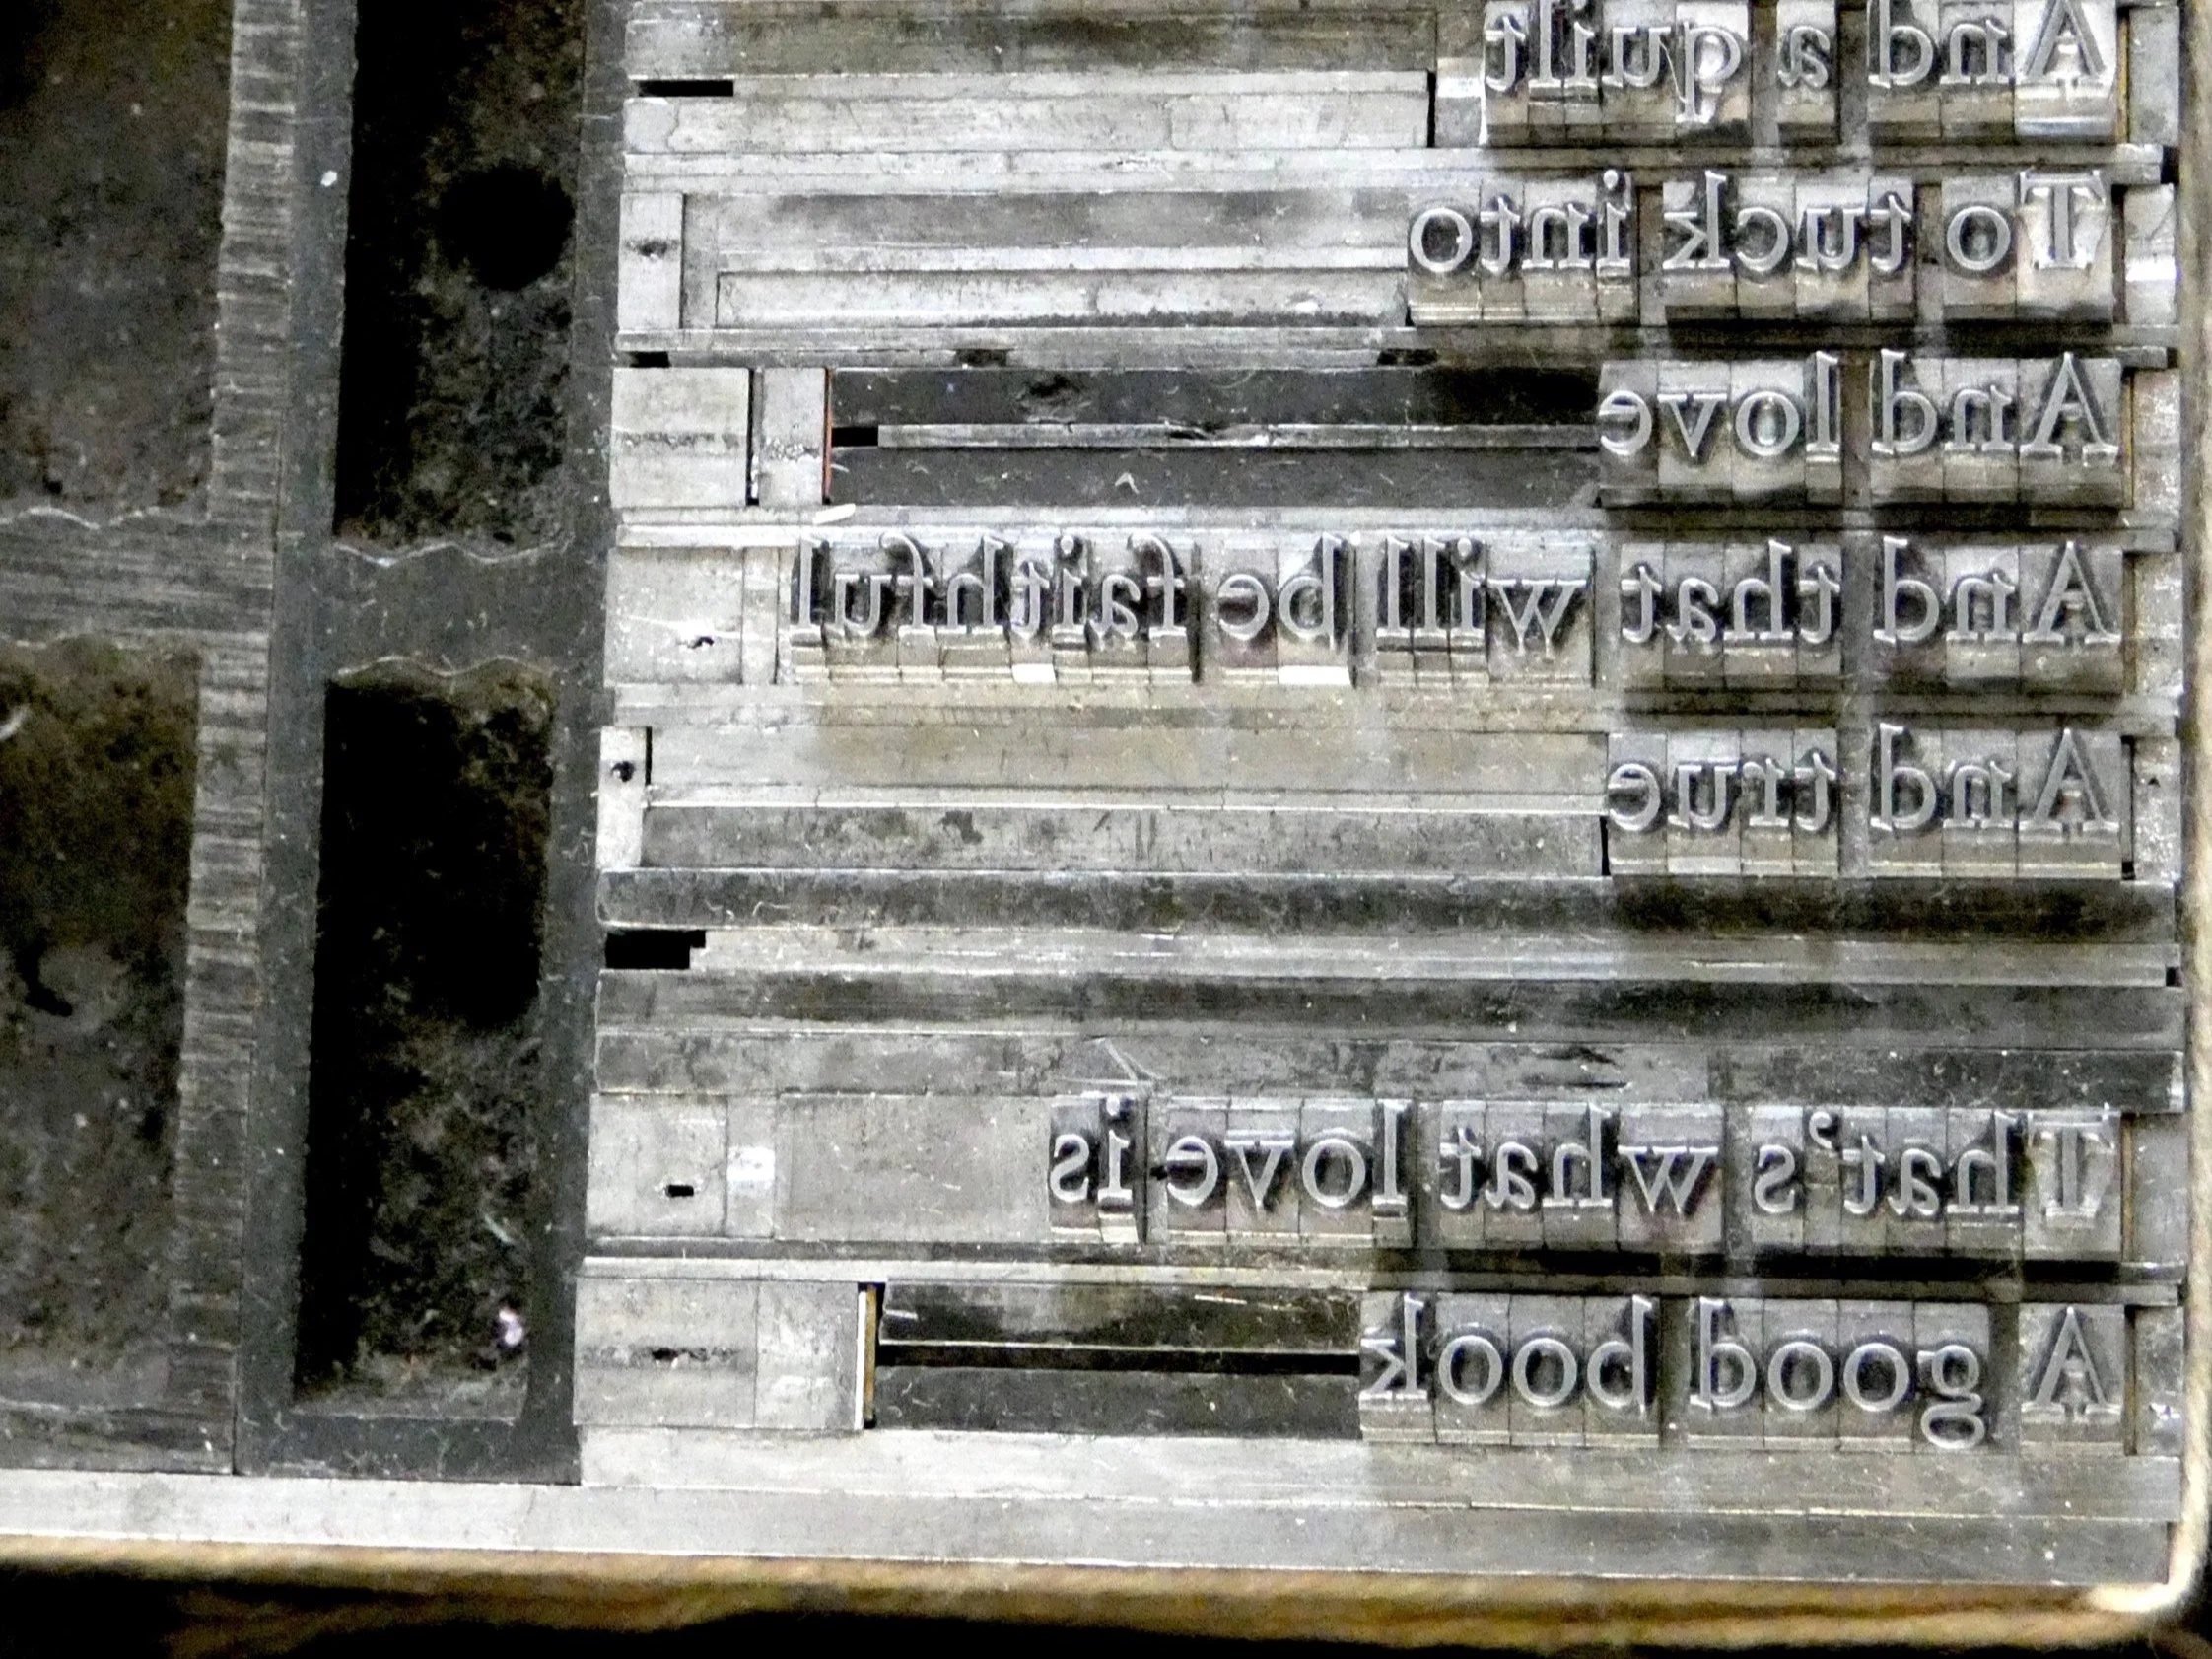 And a quilt
To tuck into
And love
And that will be faithful
And true
That's what love is
A good book